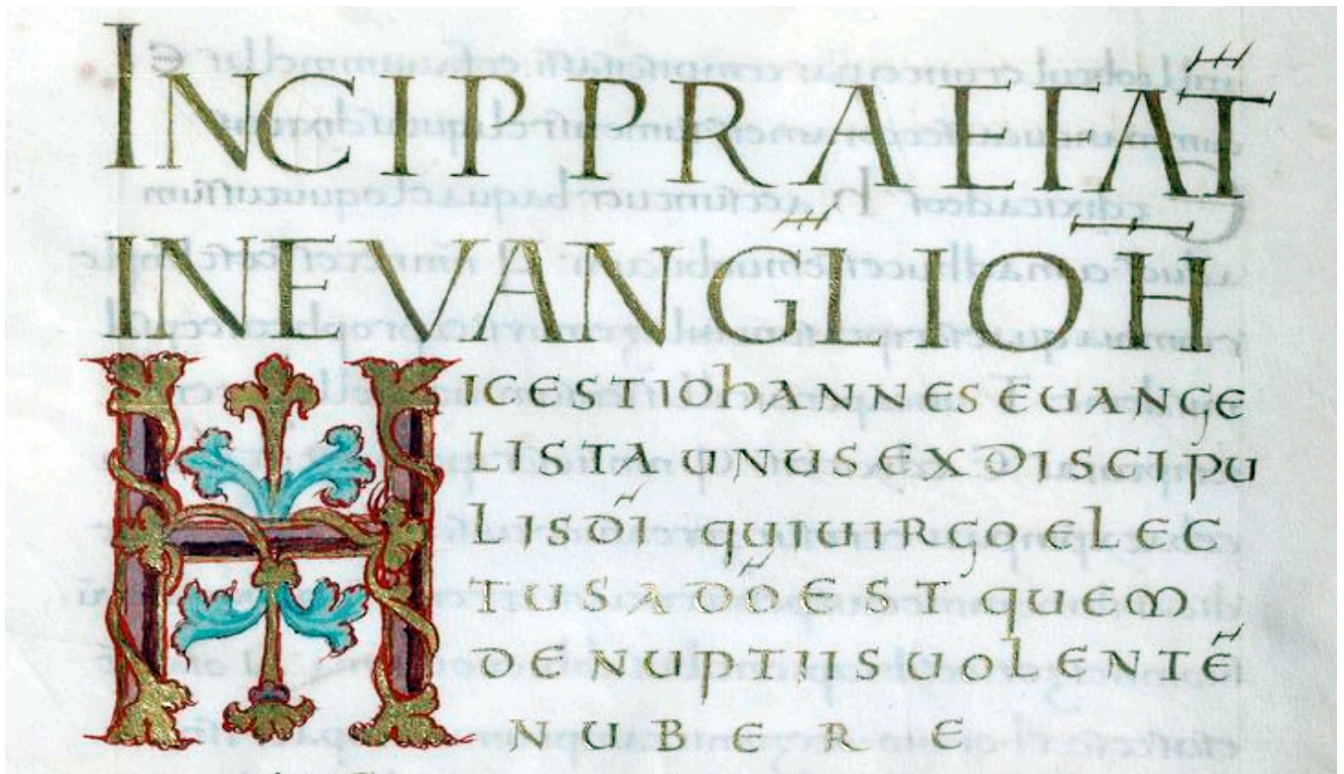 INCIP PRAEFAT̄
IN EVANGL̄ IOH̄
HIC EST IOHANNES EUANGE
LISTA UNUS EX DISCIPU
LIS DĪ QUI UIRGO ELEC
TUS A DŌ EST QUEM
DE NUPTIIS UOLENTĒ
NUBERE